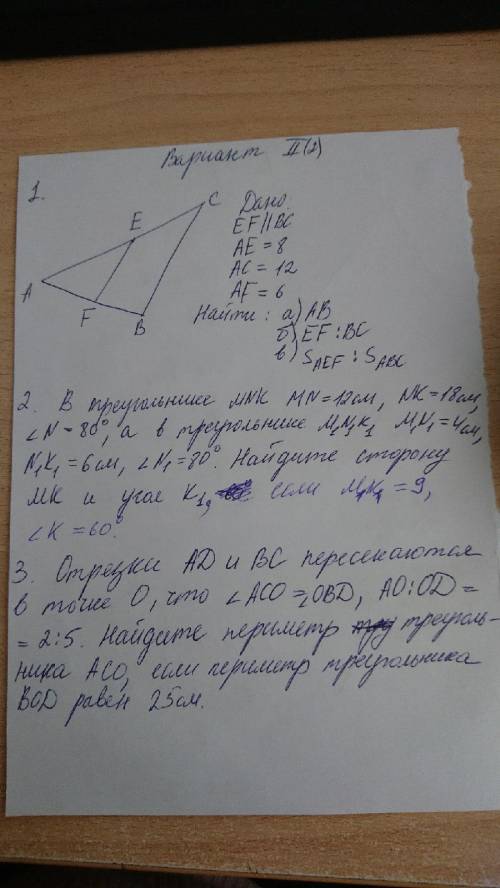 Вариант II(2)
1.
A
E
C
F
B
Дано:
EF||BC
AE = 8
AC = 12
AF = 6
Найти: а) AB
б) EF : BC
в) S AEF : S ABC
2. В треугольнике MNK MN=12см, NK=18см,
∠N=80°, а в треугольнике M₁N₁K₁ M₁N₁=4см,
N₁K₁=6см, ∠N₁=80°. Найдите сторону
MK и угол K₁, если M₁K₁=9,
∠K=60°
3. Отрезки AD и BC пересекаются
в точке O, что ∠ACO=∠OBD, AO:OD=
=2:5. Найдите периметр треуголь-
ника ACO, если периметр треугольника
BOD равен 25см.